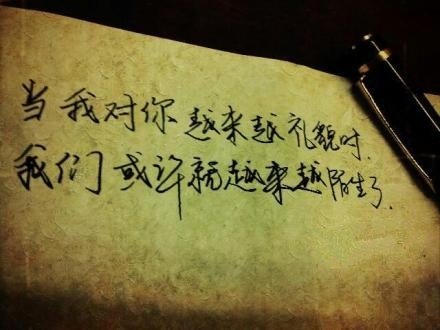 当我对你越来越礼貌时.
我们或许就越来越陌生了.